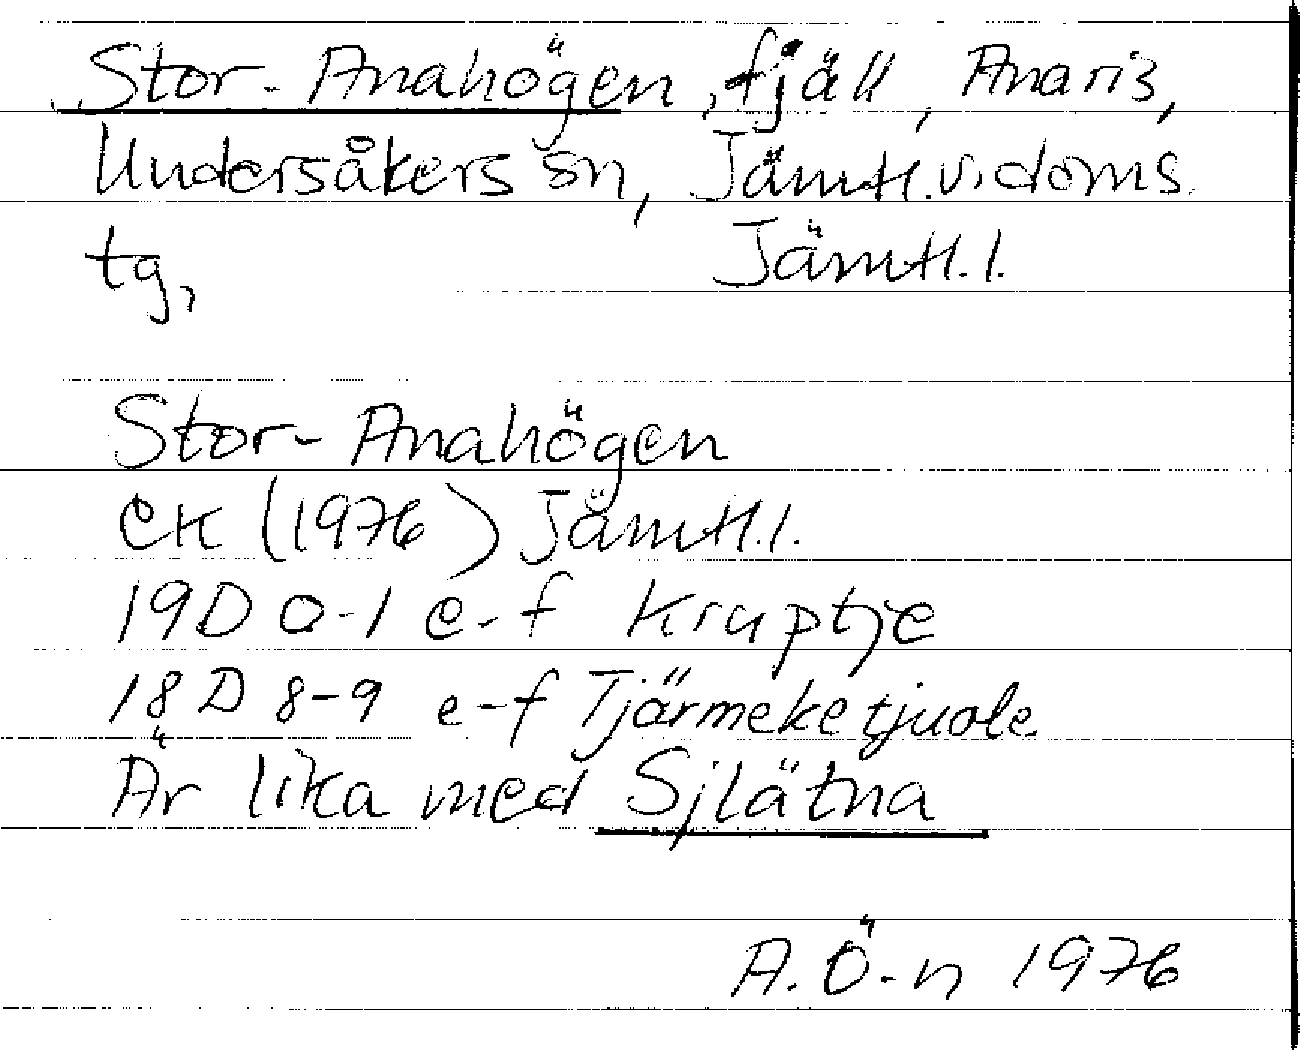 Stor-Anahögen, fjäll, Anaris,
Undersåkers sn, Jämtl.v.doms.
tg, Jämtl.l.
Stor-Anahögen
EK (1976) Jämtl.l.
19D 0-1 e-f Kruptje
18D 8-9 e-f Tjärmeketjuole
Är lika med Sjlätna
A.Ö-n 1976